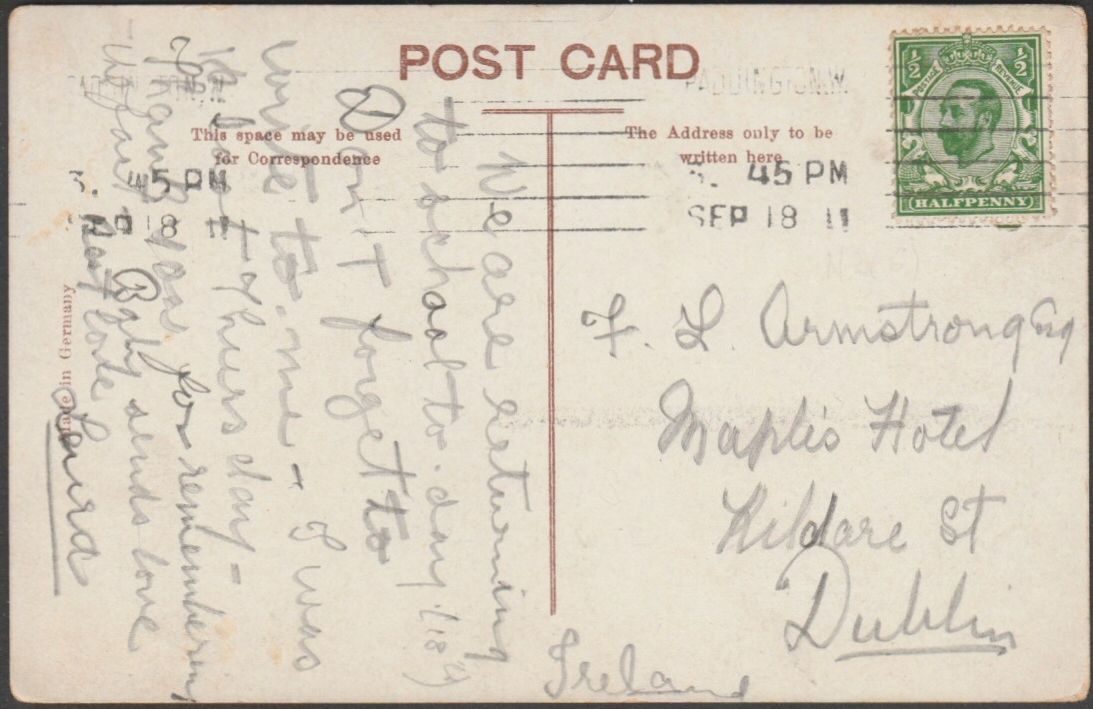 POST CARD
This space may be used
for Correspondence
The Address only to be
written here
PADDINGTON.W.
3. 45 PM
SEP 18 11
3. 45 PM
SEP 18 11
½ ½
POSTAGE REVENUE
HALFPENNY
Made in Germany
We are returning
to school to-day (18th)
Don't forget to
write to me - I was
13 last Thursday -
Thank you for remembering
Baby sends love
Best love
Laura
F. L. Armstrong Esq
Maples Hotel
Kildare St
Dublin
Ireland